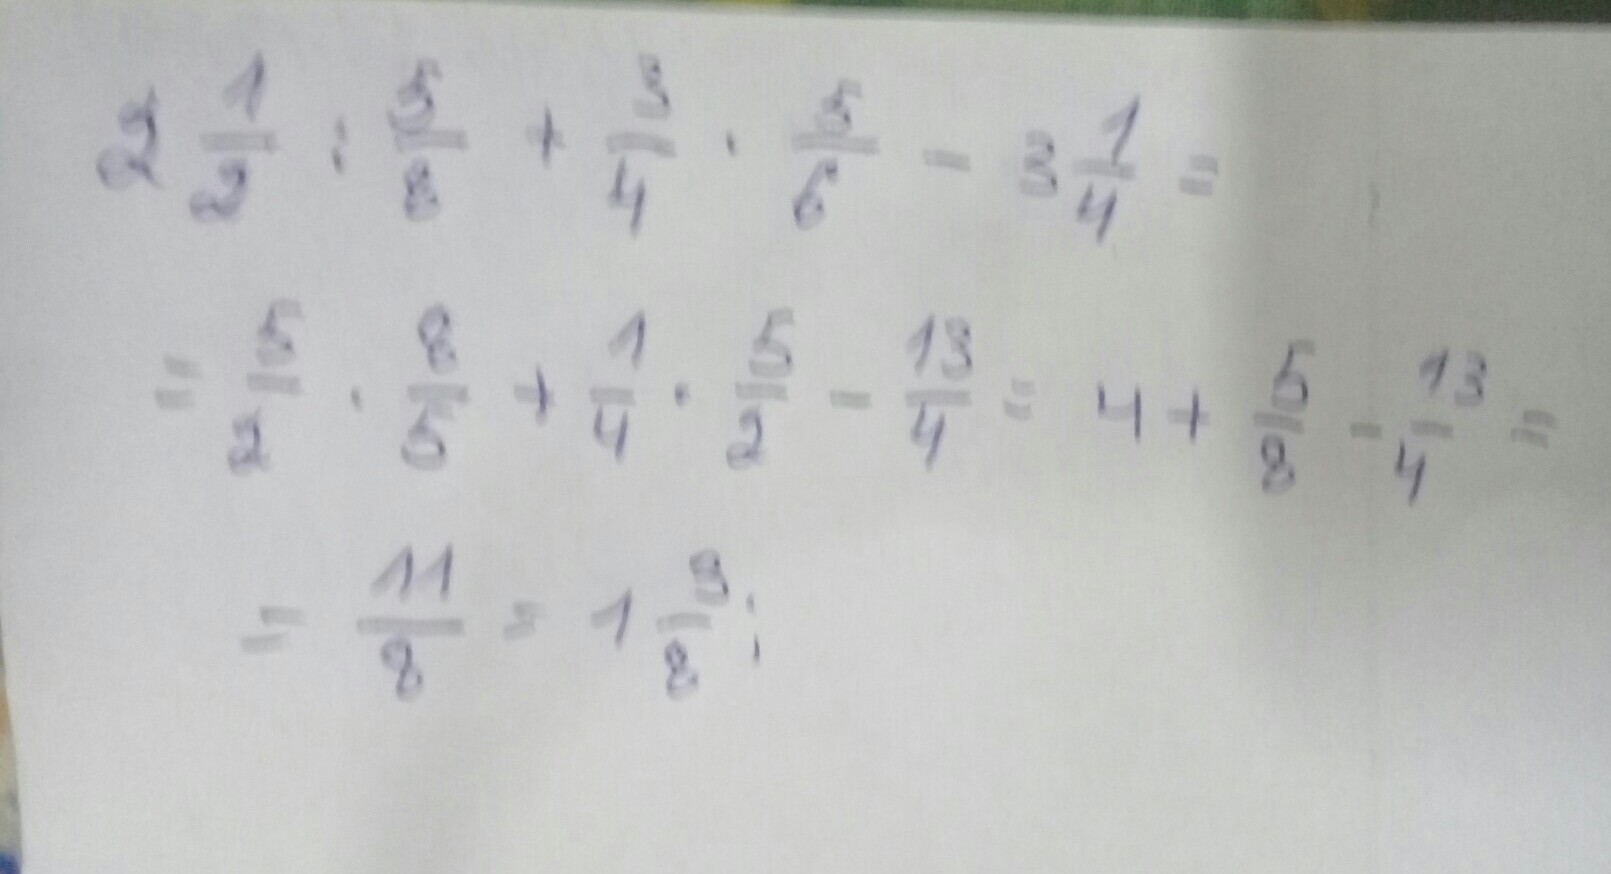 2 1/2 : 5/8 + 3/4 · 5/6 - 3 1/4 =
= 5/2 · 8/5 + 1/4 · 5/2 - 13/4 = 4 + 5/8 - 13/4 =
= 11/8 = 1 3/8;